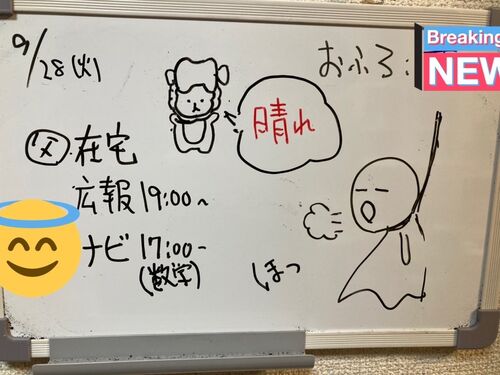 9/28(火)
おふろ:
Breaking
NEW
晴れ
父 在宅
広報 19:00~
ナビ 17:00-
(数学)
ほっ